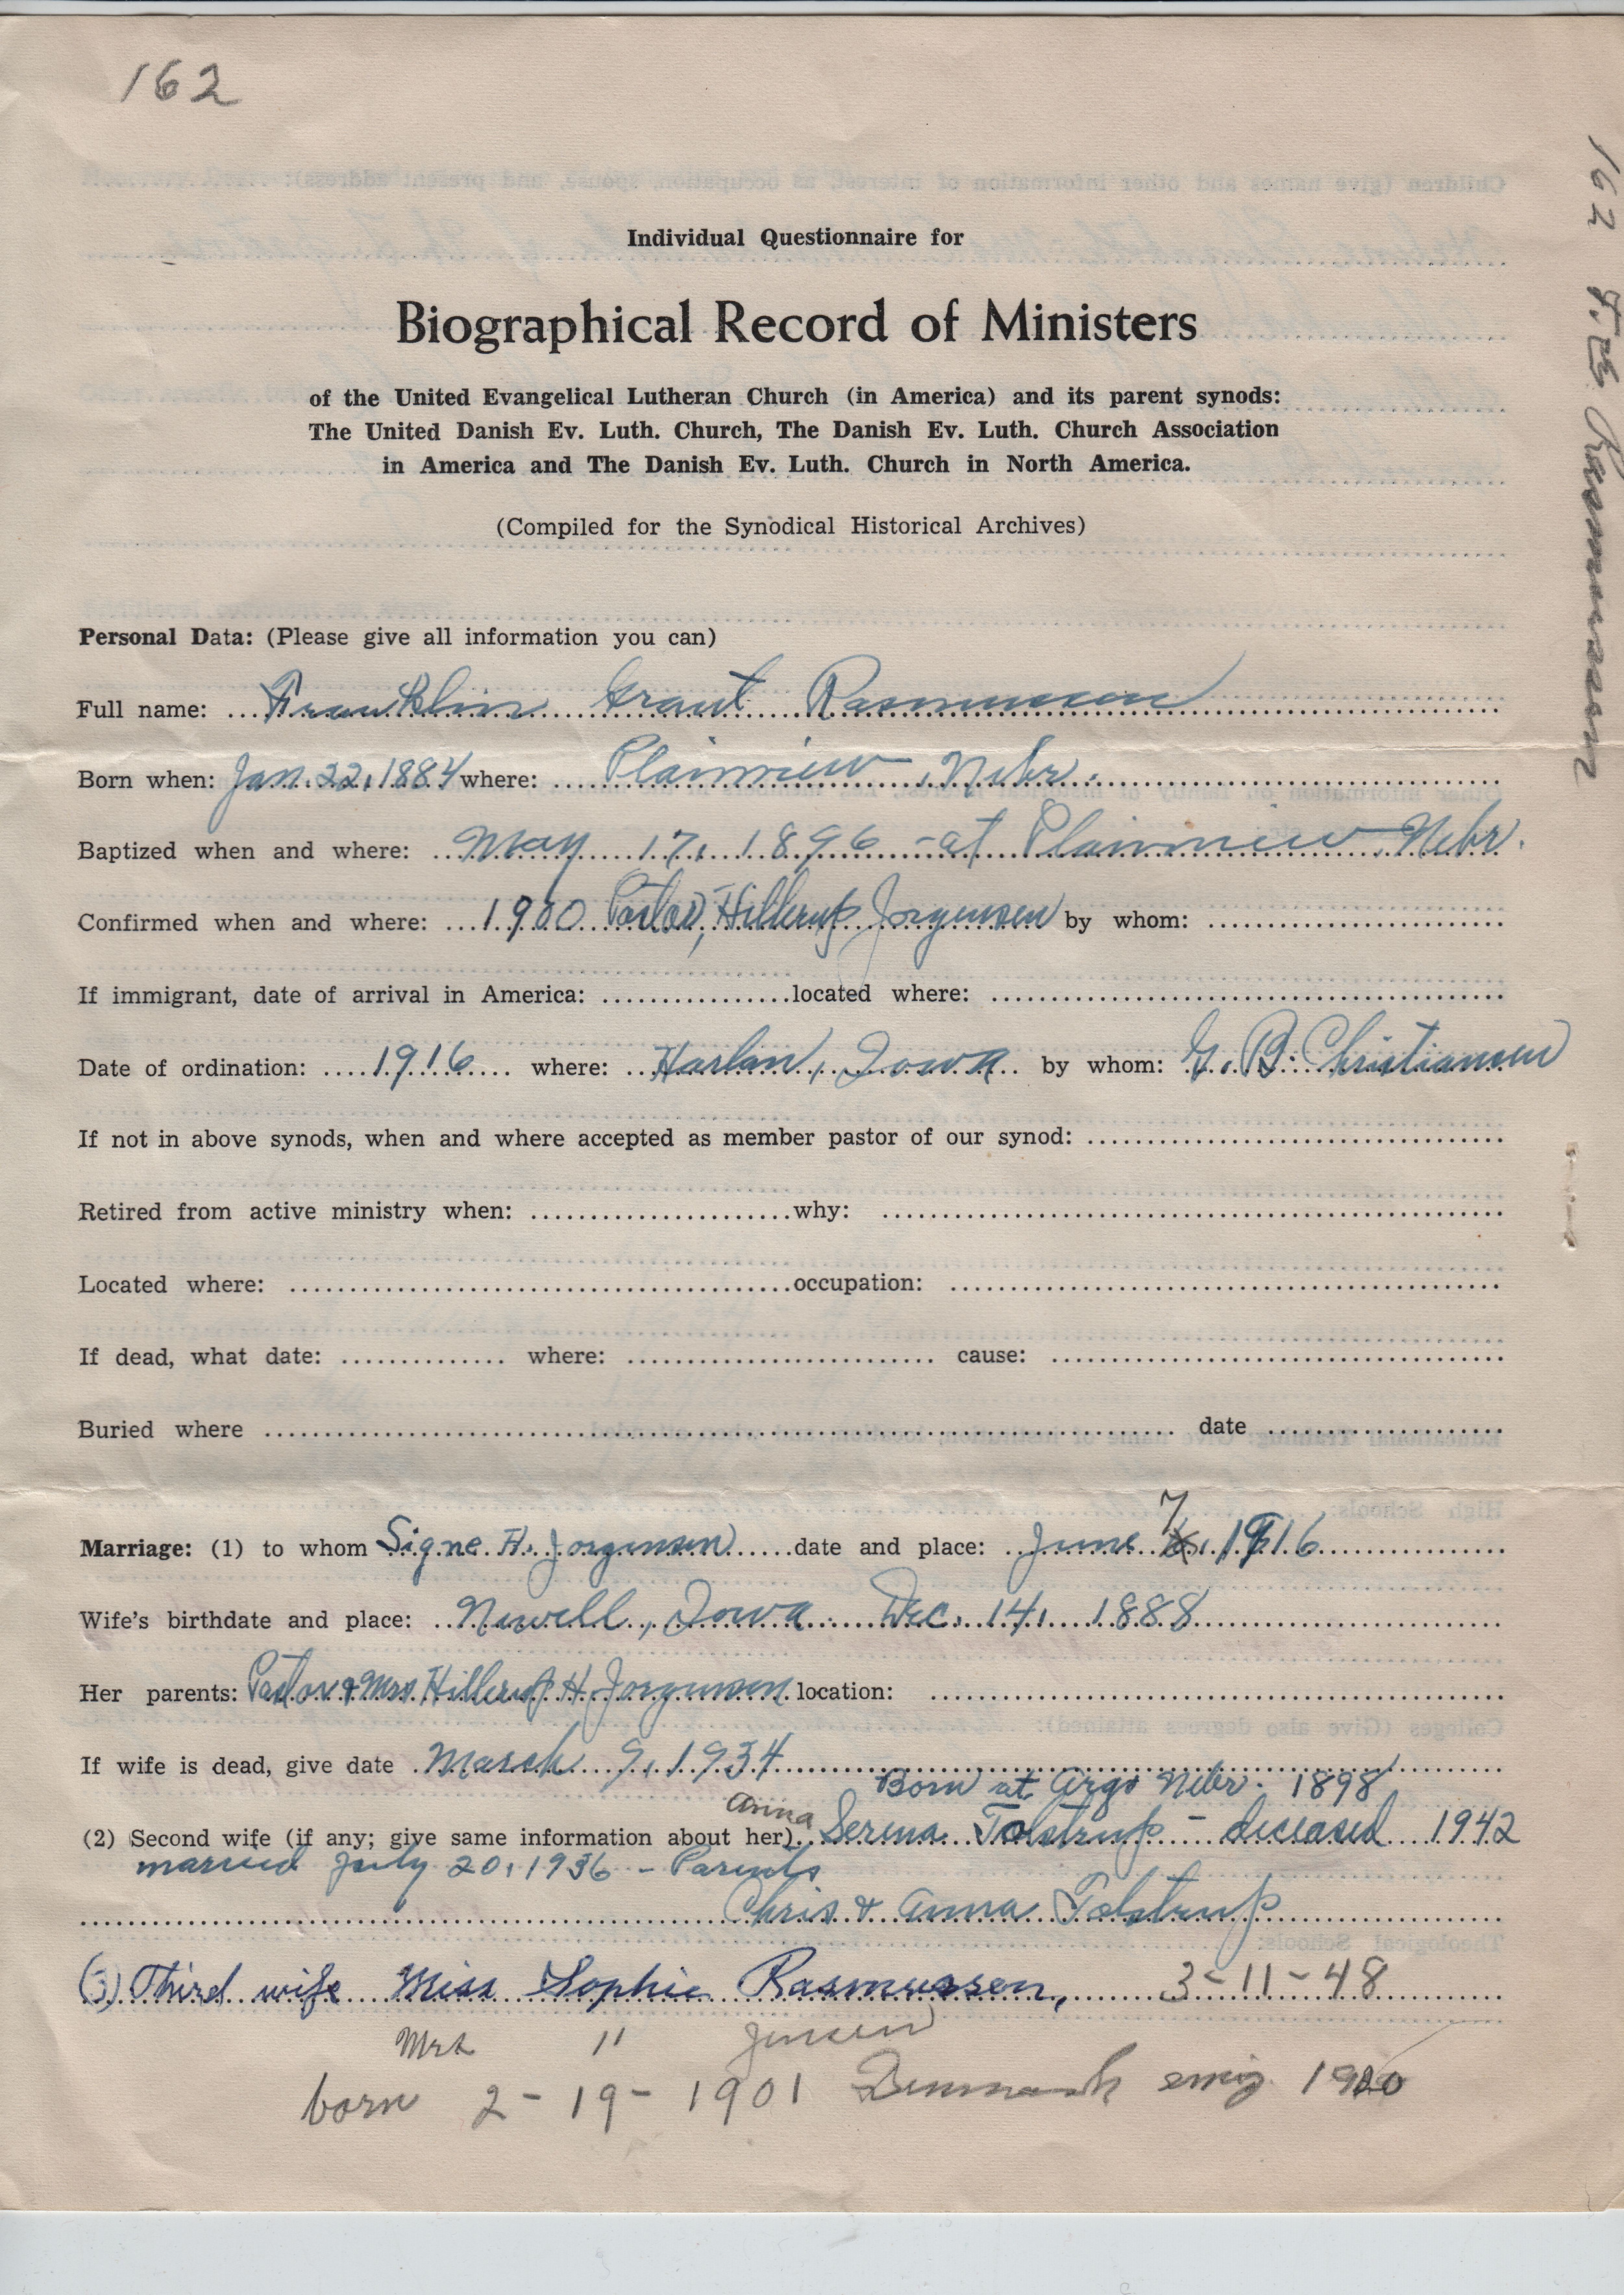 162
162 F. G. Rasmussen
Individual Questionnaire for
Biographical Record of Ministers
of the United Evangelical Lutheran Church (in America) and its parent synods:
The United Danish Ev. Luth. Church, The Danish Ev. Luth. Church Association
in America and The Danish Ev. Luth. Church in North America.
(Compiled for the Synodical Historical Archives)
Personal Data: (Please give all information you can)
Full name: Franklin Grant Rasmussen
Born when: Jan. 22, 1884 where: Plainview, Nebr.
Baptized when and where: May 17, 1896 - at Plainview, Nebr.
Confirmed when and where: 1900 Pastor, Hillerup Jorgensen by whom:
If immigrant, date of arrival in America: located where:
Date of ordination: 1916 where: Harlan, Iowa by whom: G. B. Christiansen
If not in above synods, when and where accepted as member pastor of our synod:
Retired from active ministry when: why:
Located where: occupation:
If dead, what date: where: cause:
Buried where date
Marriage: (1) to whom Signe H. Jorgensen date and place: June 7, 1916
Wife's birthdate and place: Newell, Iowa. Dec. 14, 1888
Her parents: Pastor & Mrs Hillerup H. Jorgensen location:
If wife is dead, give date March 9, 1934
Born at Argo Nebr. 1898
(2) Second wife (if any; give same information about her) Anna Serena Tolstrup - deceased 1942
married July 20, 1936 - Parents
Chris & Anna Tolstrup
(3) Third wife Miss Sophie Rasmussen, 3-11-48
Mrs " Jensen
born 2-19-1901 Denmark emig. 1920